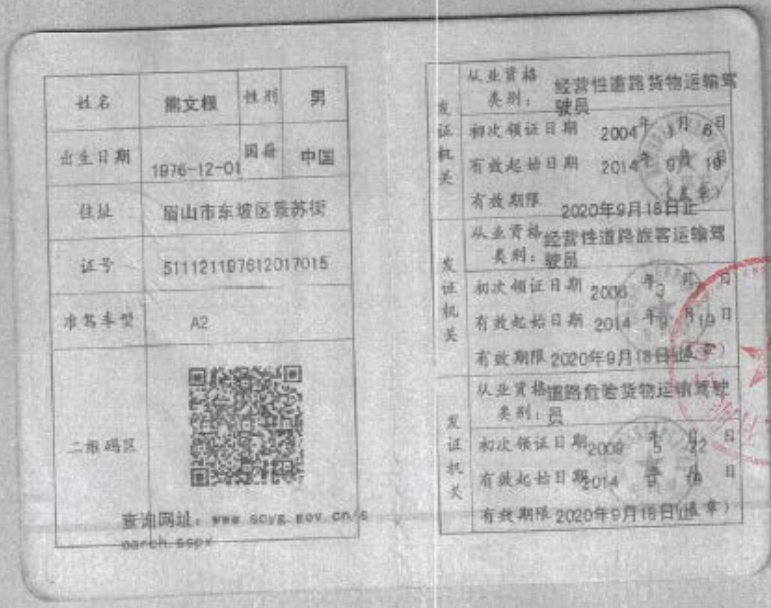 姓名 熊文根 性别 男
出生日期 1976-12-01 国籍 中国
住址 眉山市东坡区景苏街
证号 511121197612017015
准驾车型 A2
二维码区
查询网址：www scyg gov cn/s
earch aspx
发证机关
从业资格类别：经营性道路货物运输驾
驶员
初次领证日期 2004年 1月 6日
有效起始日期 2014年 9月 19日
有效期限 2020年9月18日止（盖章）
发证机关
从业资格类别：经营性道路旅客运输驾
驶员
初次领证日期 2006年 3月 日
有效起始日期 2014年 9月 19日
有效期限 2020年9月18日止（盖章）
发证机关
从业资格类别：道路危险货物运输驾驶
员
初次领证日期 2009年 5月 22日
有效起始日期 2014年 9月 19日
有效期限 2020年9月18日止（盖章）